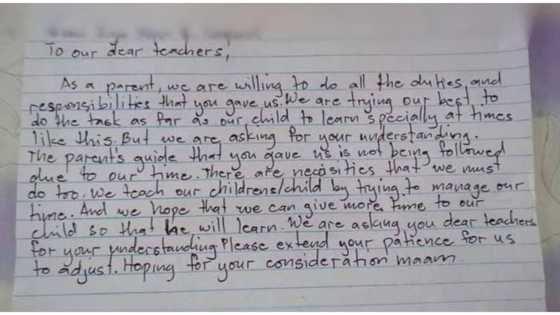 To our dear teachers,
As a parent, we are willing to do all the duties and
responsibilities that you gave us. We are trying our best to
do the task as far as our child to learn specially at times
like this. But we are asking for your understanding.
The parent's guide that you gave us is not being followed
due to our time. There are necosities that we must
do too. We teach our childrens/child by trying to manage our
time. And we hope that we can give more time to our
child so that he will learn. We are asking you dear teachers
for your understanding. Please extend your patience for us
to adjust. Hoping for your consideration maam